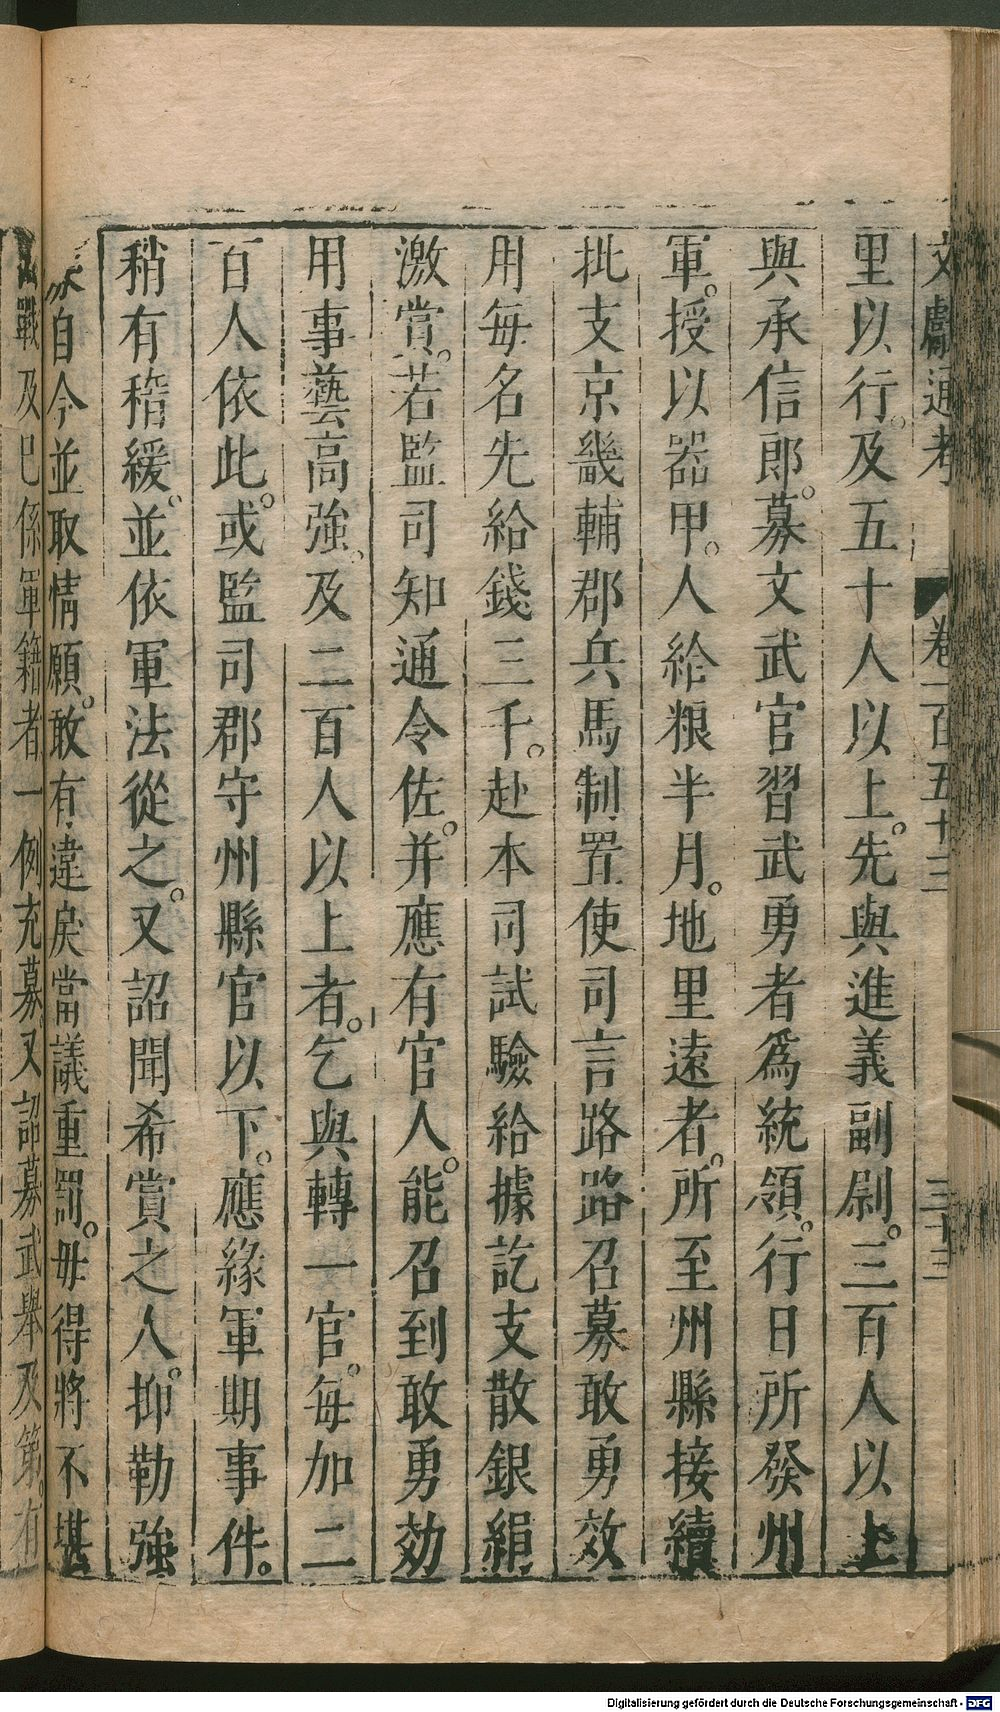 文獻通考 卷一百五十三 三十三
里以行。及五十人以上。先與進義副尉。三百人以上
與承信郎。募文武官習武勇者爲統領。行日所發州
軍。授以器甲。人給粮半月。地里遠者。所至州縣接續
批支京畿輔郡兵馬制置使司言路路召募敢勇效
用每名先給錢三千。赴本司試驗給據訖支散銀絹
激賞。若監司知通令佐。并應有官人。能召到敢勇効
用事藝高強。及二百人以上者。乞與轉一官。每加二
百人依此。或監司郡守州縣官以下。應緣軍期事件。
稍有稽緩。並依軍法從之。又詔聞希賞之人。抑勒強
自今並取情願。敢有違戾當議重罰。毋得將不堪
戰及已係軍籍者一例充募。又詔募武舉及第。有
Digitalisierung gefördert durch die Deutsche Forschungsgemeinschaft - DFG